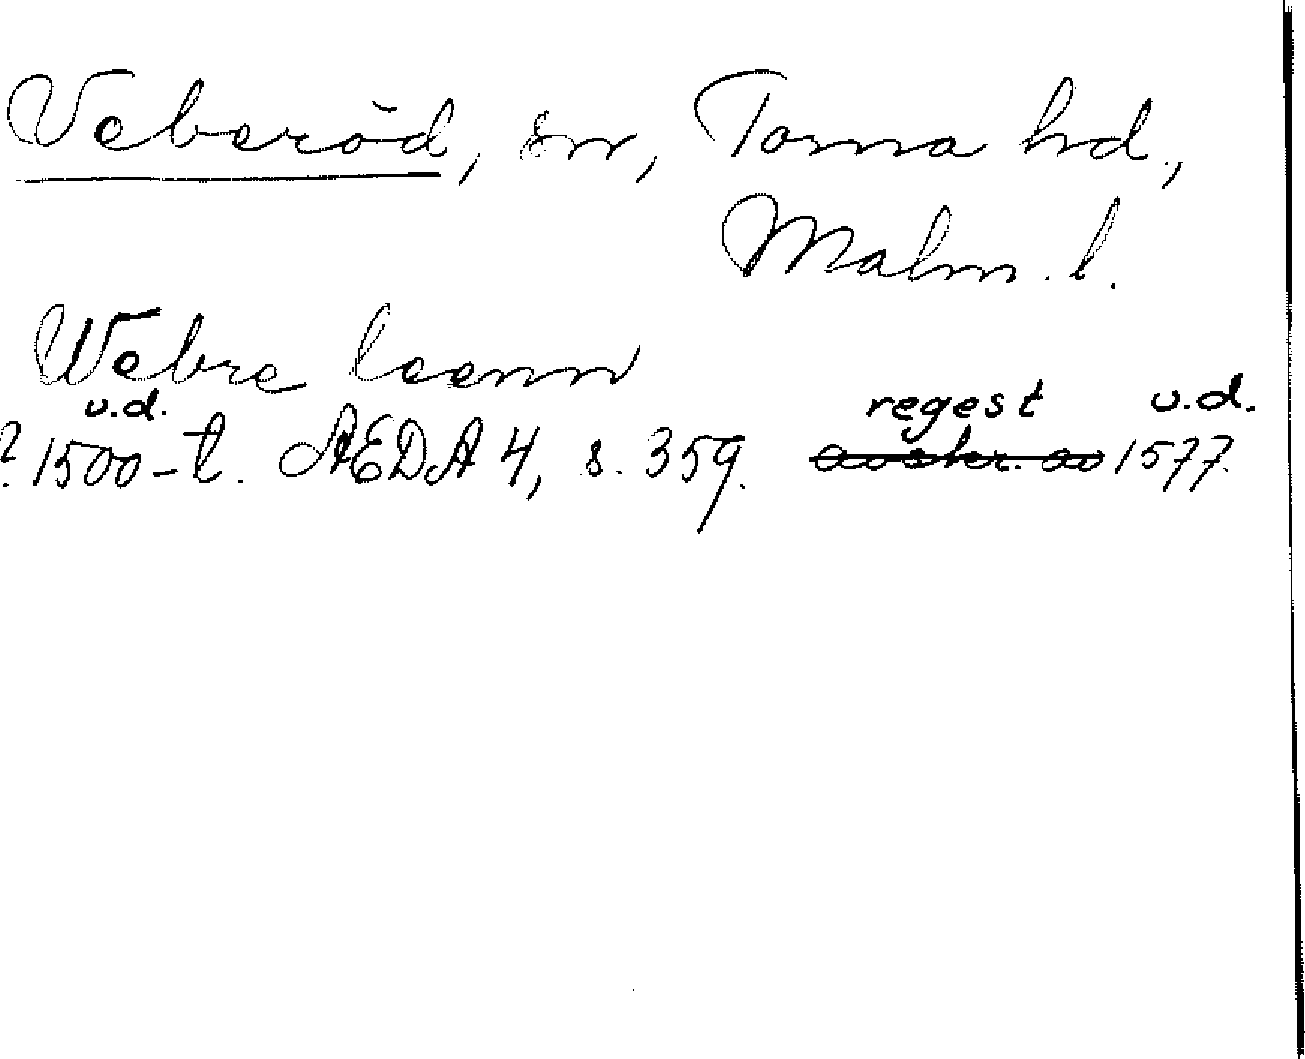 Veberöd, sn, Torna hd.,
Malm. l.
Webre leenn
u.d. regest u.d.
? 1500-t. AEDA 4, s. 359. avskr. av 1577.